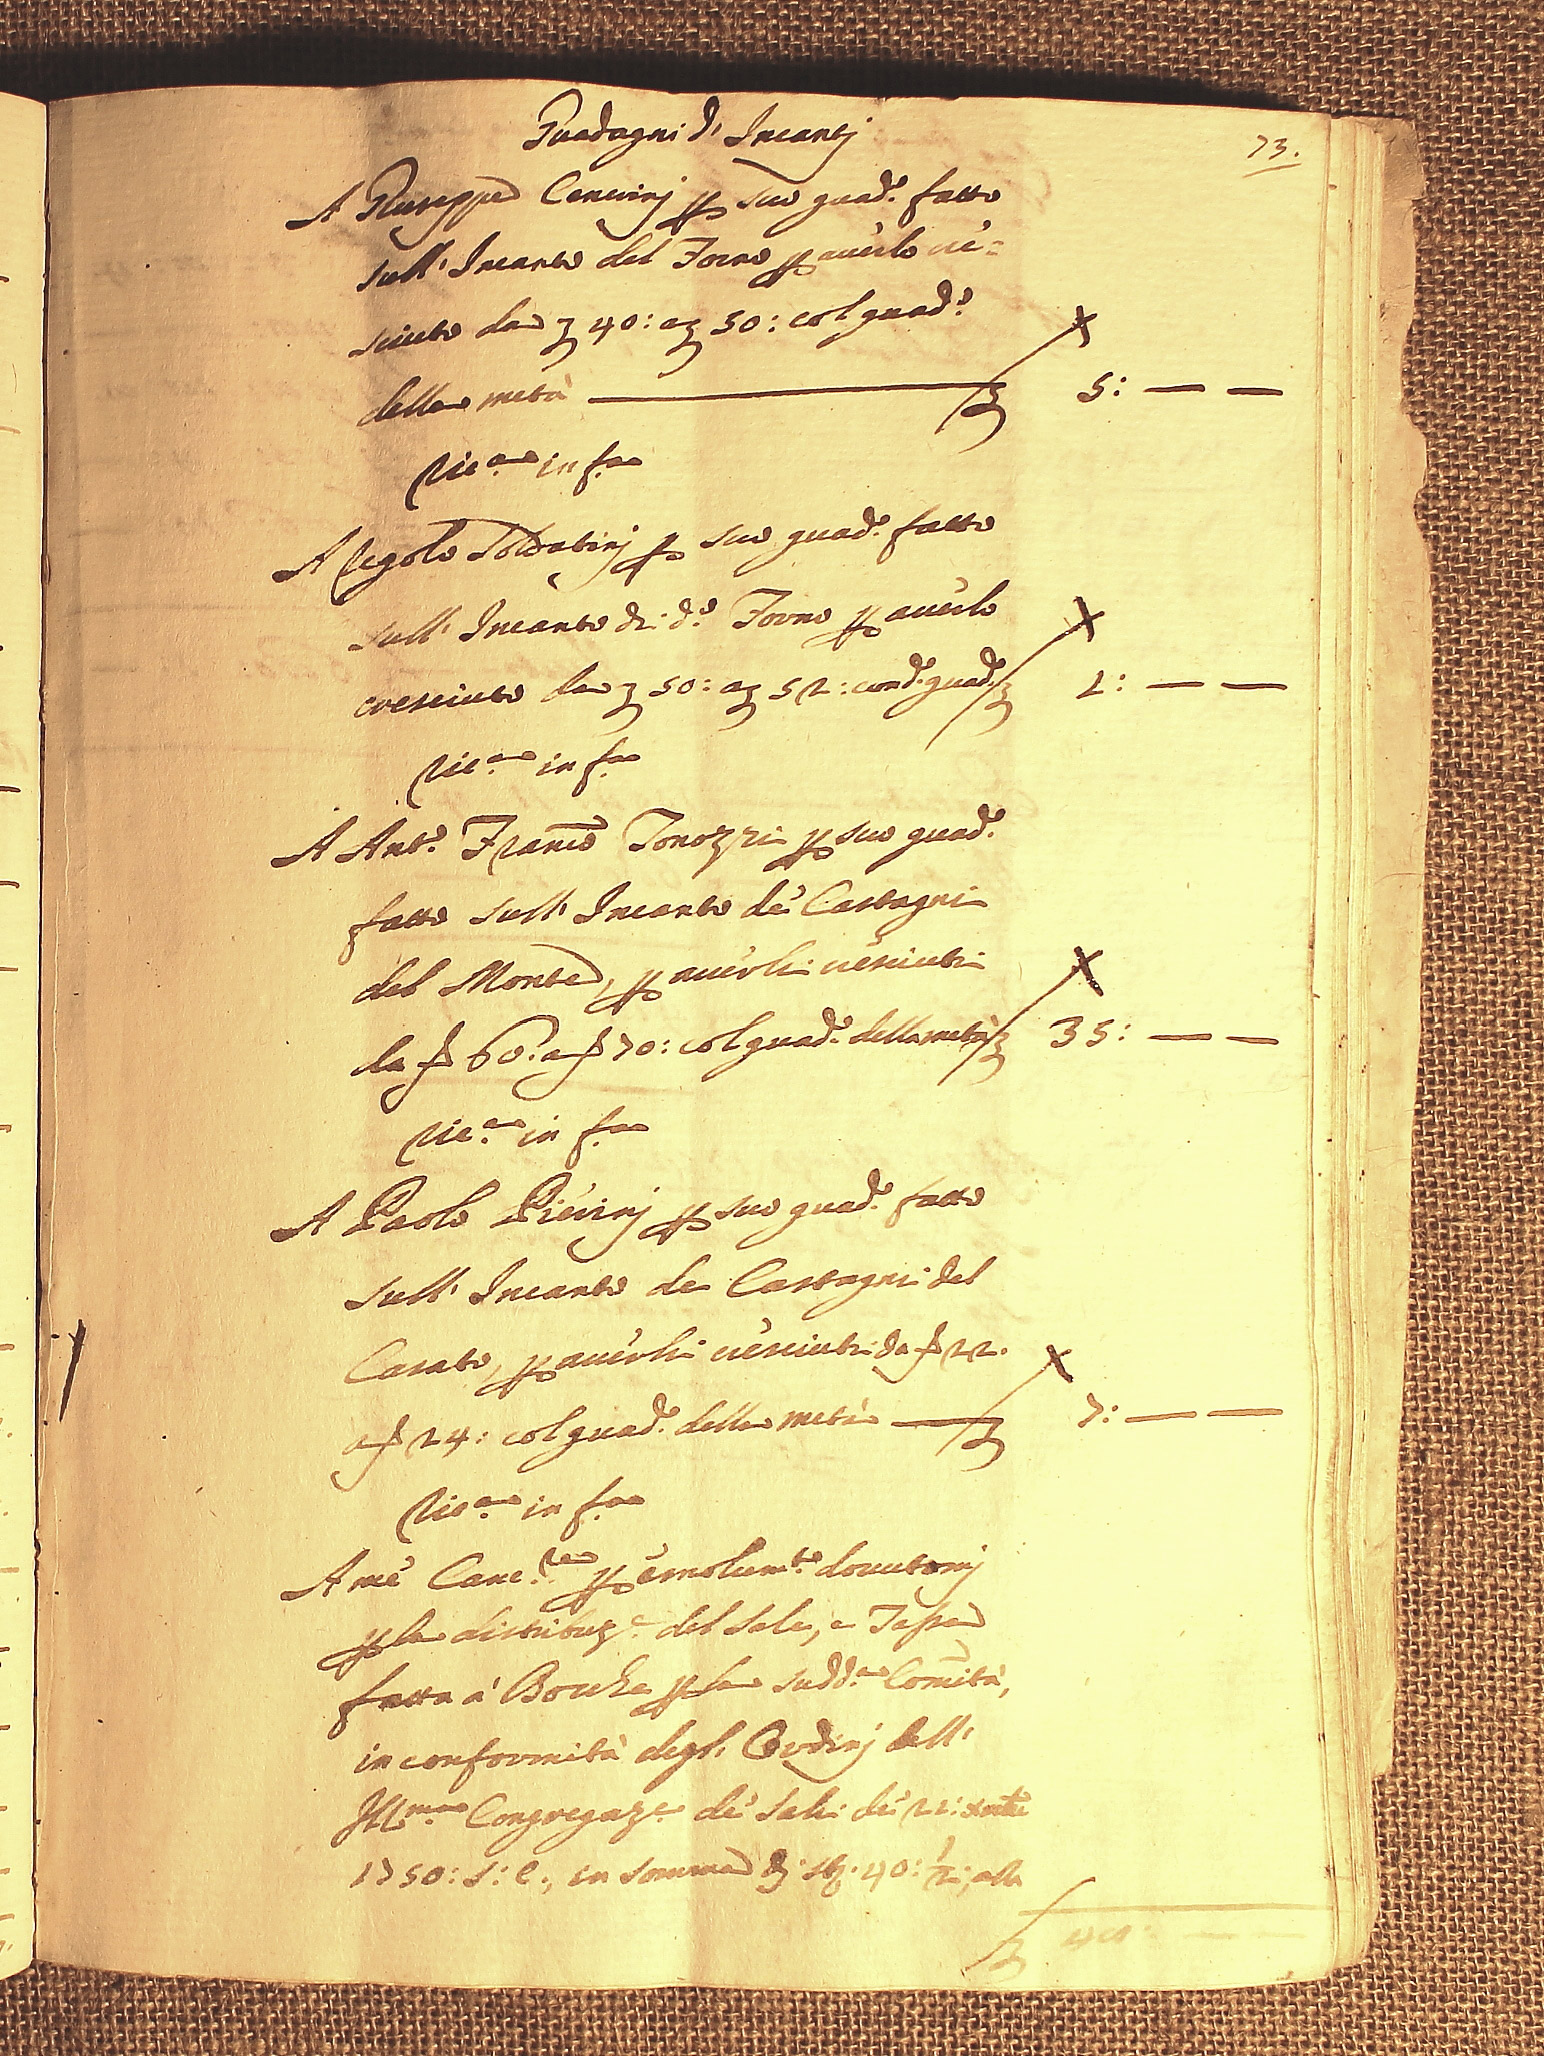 Guadagni d'Incantj
73.
A Giuseppe Cenerinj p suo guad.o fatto
sull' Incanto del Forno p auerlo cre=
sciuto da £ 40: a £ 50: col guad.o
della metà £ 5: — —
Ric.a in f.a
A Regolo Soldatinj p suo guad.o fatto
sull' Incanto di d.o Forno p auerlo
cresciuto da £ 50: a £ 52: con d.o guad.o £ 1: — —
Ric.a in f.a
A Ant.o Franc.o Tonozzi p suo guad.o
fatto sull' Incanto de' Castagni
del Monte, p auerli cresciuti
da ƒ 60: a ƒ 70: col guad.o della metà £ 35: — —
Ric.a in f.a
A Paolo Pierinj p suo guad.o fatto
sull' Incanto de Castagni del
Casato, p auerli cresciuti da ƒ 22.
a ƒ 24: col guad.o della metà £ 7: — —
Ric.a in f.a
A me Canc.re p emolum.to douutomj
p la distribuz.e del Sale, e Tassa
fatta a Bocche p la sudd.a Com̃ità,
in conformità degl' Ordinj dell'
Ill.ma Congregaz.e de' Sali de' 22:
1750: S: C:, in somma di st. 40: 1/2:, alla
£ — —